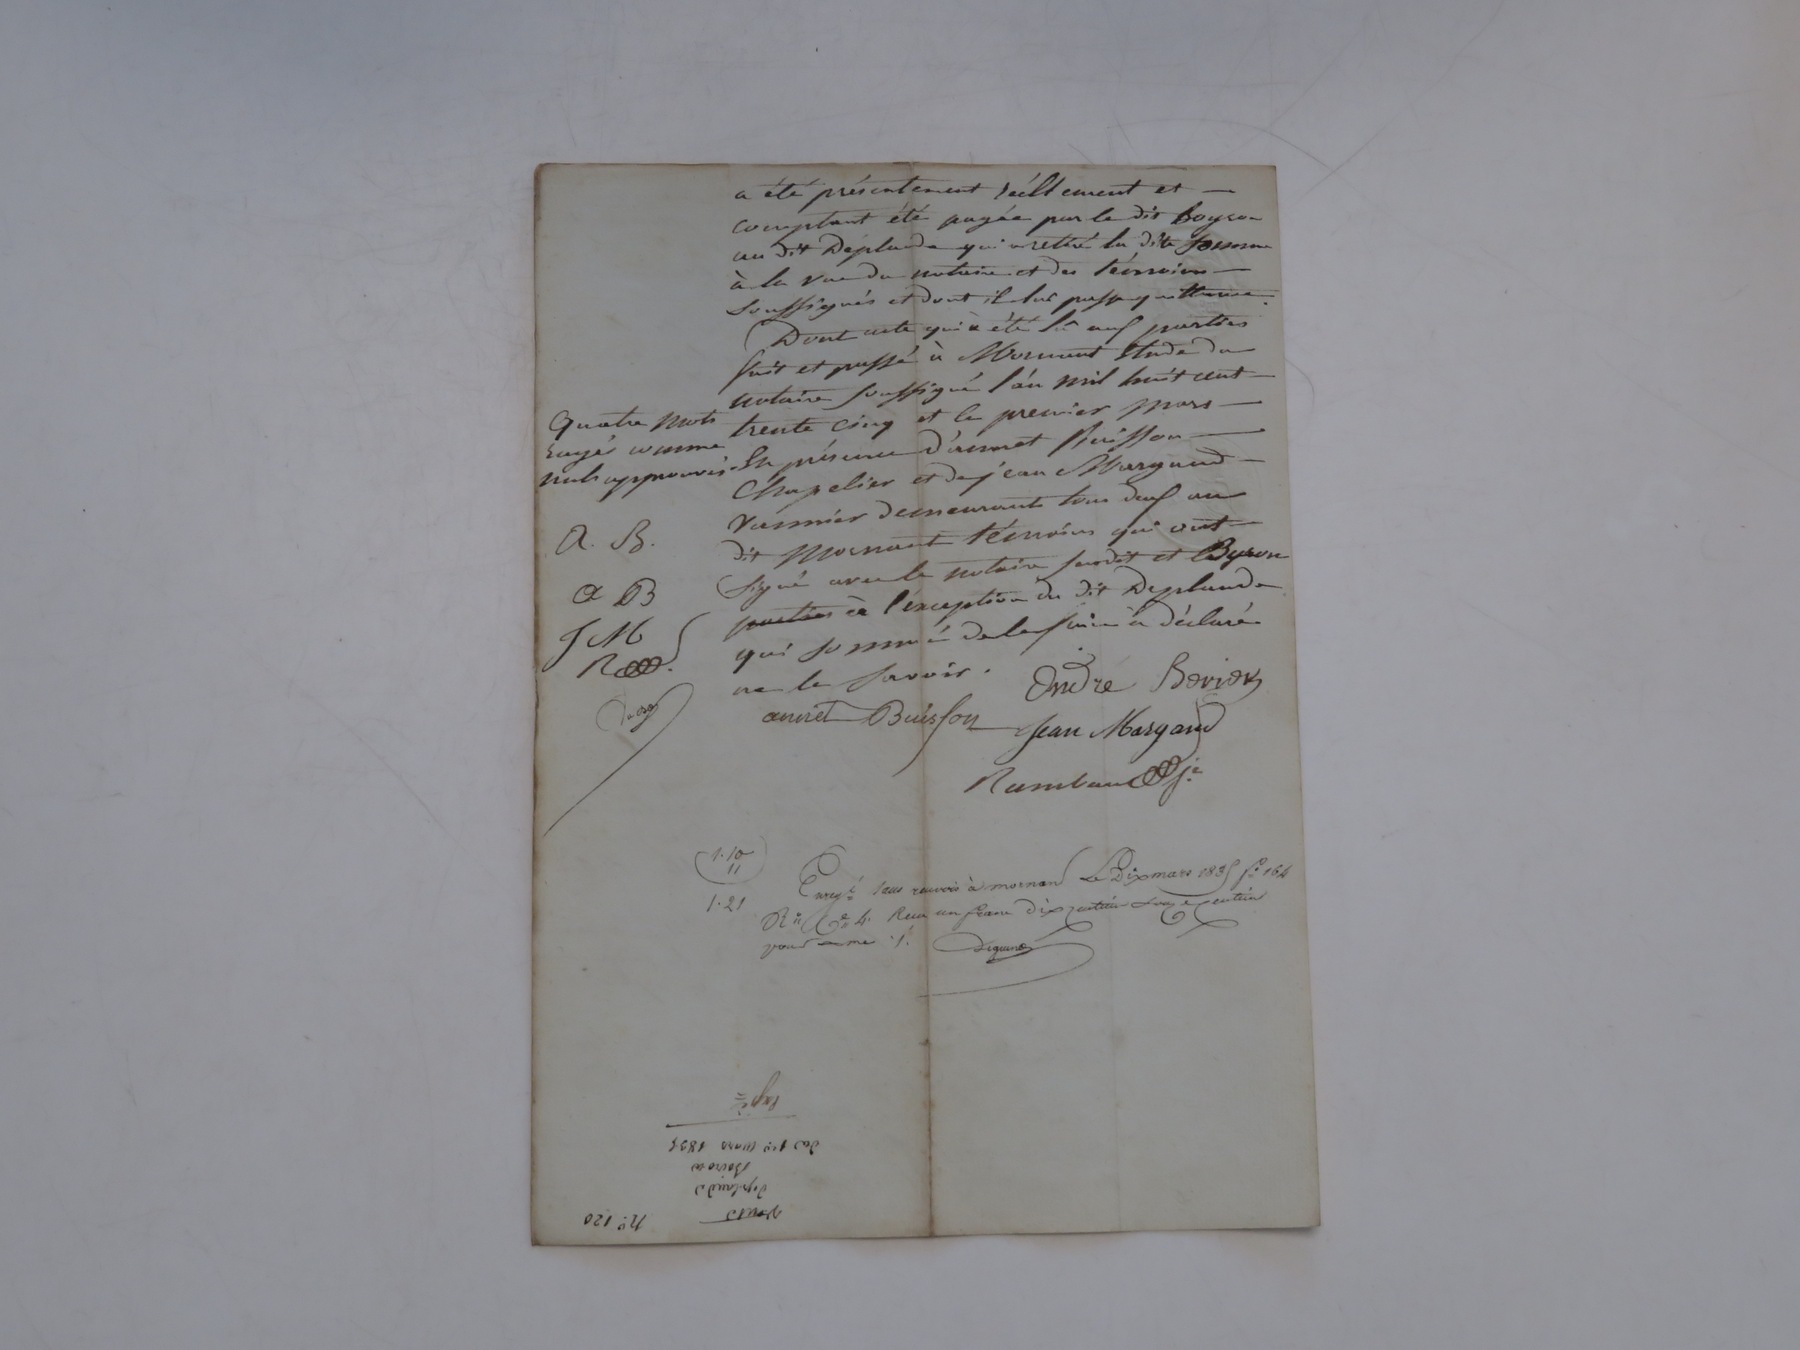 a été présentement réellement et
comptant été payée par le dit Boyron
au dit Déplaude qui a retiré la dite somme
à la vue du notaire et des témoins
soussignés et dont il lui passe quittance.
Dont acte qui a été lu aux parties
fait et passé à Mornant Etude du
notaire soussigné l'an mil huit cent
trente cinq et le premier mars
En présence d'annet Buisson
Chapelier et de jean Margand
vannier demeurant tous deux au
dit Mornant témoins qui ont
signé avec le notaire susdit et
parties à l'exception du dit Deplaude
qui sommé de le faire à déclaré
ne le savoir.
Quatre mots
rayés comme
nuls approuvés.
A. B.
a B
J M
R
André
annet Buisson
Jean Margand
Rambaud
1.10
11
1.21
Enregé sans renvois à mornant Le Dix mars 1835 fo 164
Ro Ce 4. Reçu un franc dix centimes onze centimes
pour
No 120
Vente
Deplaude
à
du 1er mars 1835
Expée